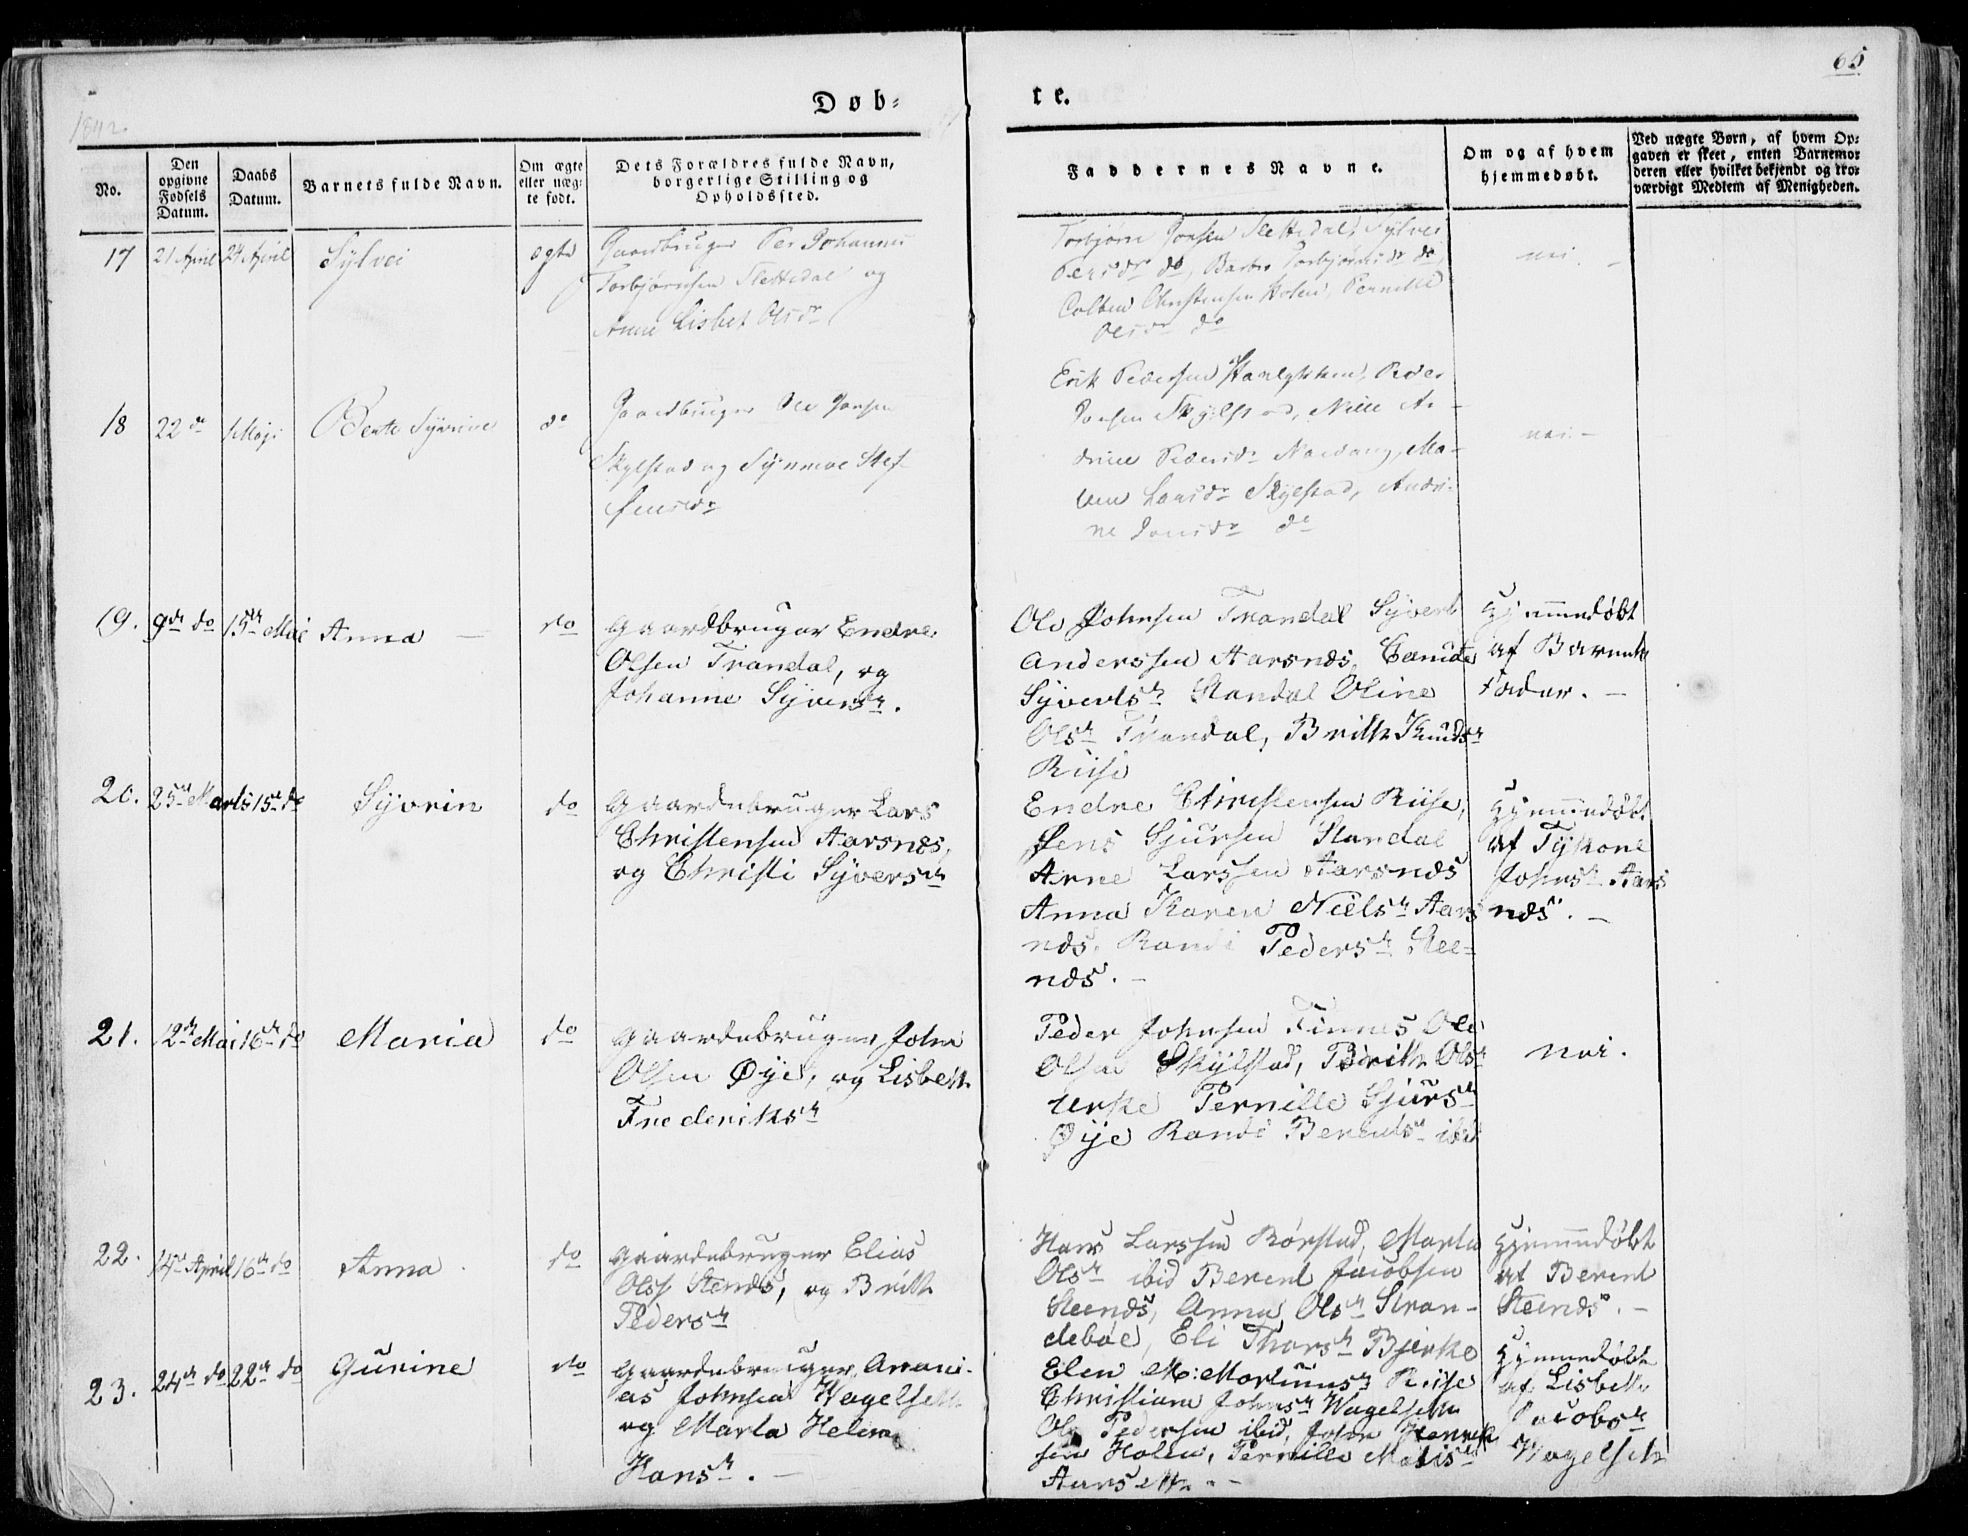 65
Døb=
te.
1842.
No.
Den
opgivne
Fødsels
Datum.
Daabs
Datum.
Barnets fulde Navn.
Om ægte
eller uæg-
te født.
Dets Forældres fulde Navn,
borgerlige Stilling og
Opholdssted.
Faddernes Navne.
Om og af hvem
hjemmedøbt.
Ved uægte Børn, af hvem Op-
gaven er skeet, enten Barnemo-
deren eller hvilket bekjendt og tro-
værdigt Medlem af Menigheden.
17
21 April
24 April
Sylvei
ægte
Gaardbruger Per Johannes
Torbjørnsen Slettedal og
Anne Lisbet Olsdr
Torbjørn Jonsen Slettedal, Sylvei
Persdr do, Barbro Torbjørnsdr do,
Colben Christensen Holen, Pernille
Olsdr do
nei. -
18
22 de
1 Maji
Bente Syvrine
do
Gaardbruger Ole Jonsen
Skylstad og Synneve Stef-
fensdr
Erik Pedersen Haulykken, Peder
Jonsen Skylstad, Nille An-
drine Pedersdr Norvang, Ma-
ren Larsdr Skylstad, Andri-
ne Jonsdr do
nei. -
19.
9de do
15de Mai
Anna -
do
Gaardbruger Endre
Olsen Trandal, og
Johanne Syversdr.
Ole Johnsen Trandal Syvert
Anderssen Aarsnæs,
Syvertsdr Standal Oline
Olsdr Trandal, Brith Knudsdr
Riise
Hjemmedøbt
af Barnets
Fader. -
20.
25de Marts
15de do
Syvrin
do
Gaardebruger Lars
Christensen Aarsnæs,
og Christi Syversdr
Endre Christensen Riise,
Jens Sjursen Standal
Arne Larssen Aarsnæs
Anna Karen Nielsdr Aars
næs, Randi Pedersdr Stee-
næs. -
Hjemmedøbt
af Tykone
Johnsdr Aars
næs. -
21.
12de Mai
16de do
Maria
do
Gaardebruger John
Olsen Øye, og Lisbeth
Frederiksdr
Peder Johnsen Finnes Ole
Olsen Skylstad, Brith Olsdr
Urke Pernille Sjursdr
Øye Randi Berentsdr ibid
Nei.
22.
14de April
16de do
Anna.
do
Gaardebruger Elias
Olss Stenæs, og Brith
Pedersdr
Hans Larssen Rørstad, Marta
Olsdr ibid Berent Jacobsen
Steenæs, Anna Olsdr Stran-
debøe, Eli Thorsdr Bjerke
Hjemmedøbt
af Berent
Steenæs. -
23.
24de do
22de do
Gurine
do
Gaardebruger Anani-
as Johnsen Wagelseth
og Marta Helena
Hansdr. -
Elen M: Mortinusdr Riise
Christiane Johnsdr Wagelseth
Ole Pedersen ibid, John Henrik
sen Holen, Pernille Matisdr
Aarseth. -
Hjemmedøbt
af Lisbeth
Jacobsdr
Wagelseth